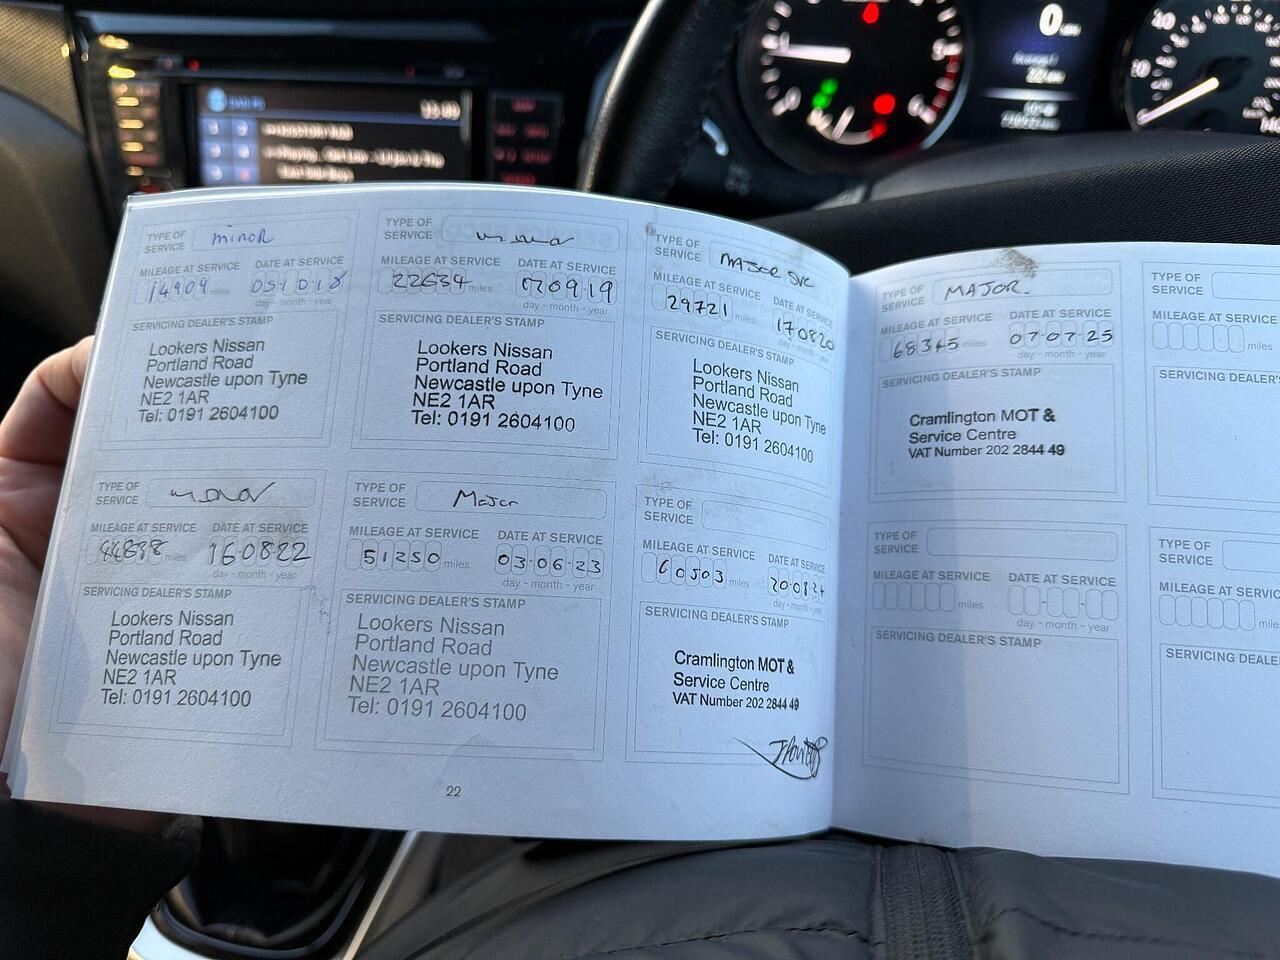 0
TYPE OF
SERVICE
minor
MILEAGE AT SERVICE DATE AT SERVICE
14909 miles 051018
day - month - year
SERVICING DEALER'S STAMP
Lookers Nissan
Portland Road
Newcastle upon Tyne
NE2 1AR
Tel: 0191 2604100
TYPE OF
SERVICE
minor
MILEAGE AT SERVICE DATE AT SERVICE
22634 miles 170919
day - month - year
SERVICING DEALER'S STAMP
Lookers Nissan
Portland Road
Newcastle upon Tyne
NE2 1AR
Tel: 0191 2604100
TYPE OF
SERVICE
MAJOR SVC
MILEAGE AT SERVICE DATE AT SERVICE
29721 miles 170820
day - month - year
SERVICING DEALER'S STAMP
Lookers Nissan
Portland Road
Newcastle upon Tyne
NE2 1AR
Tel: 0191 2604100
TYPE OF
SERVICE
minor
MILEAGE AT SERVICE DATE AT SERVICE
miles 160822
day - month - year
SERVICING DEALER'S STAMP
Lookers Nissan
Portland Road
Newcastle upon Tyne
NE2 1AR
Tel: 0191 2604100
TYPE OF
SERVICE
Major
MILEAGE AT SERVICE DATE AT SERVICE
51250 miles 03-06-23
day - month - year
SERVICING DEALER'S STAMP
Lookers Nissan
Portland Road
Newcastle upon Tyne
NE2 1AR
Tel: 0191 2604100
TYPE OF
SERVICE
MILEAGE AT SERVICE DATE AT SERVICE
60503 miles 20-08-24
day - month - year
SERVICING DEALER'S STAMP
Cramlington MOT &
Service Centre
VAT Number 202 2844 49
22
TYPE OF
SERVICE
MAJOR.
MILEAGE AT SERVICE DATE AT SERVICE
68345 miles 07-07-25
day - month - year
SERVICING DEALER'S STAMP
Cramlington MOT &
Service Centre
VAT Number 202 2844 49
TYPE OF
SERVICE
MILEAGE AT SERVICE
miles
SERVICING DEALER'S
TYPE OF
SERVICE
MILEAGE AT SERVICE DATE AT SERVICE
miles
day - month - year
SERVICING DEALER'S STAMP
TYPE OF
SERVICE
MILEAGE AT SERVICE
miles
SERVICING DEALE